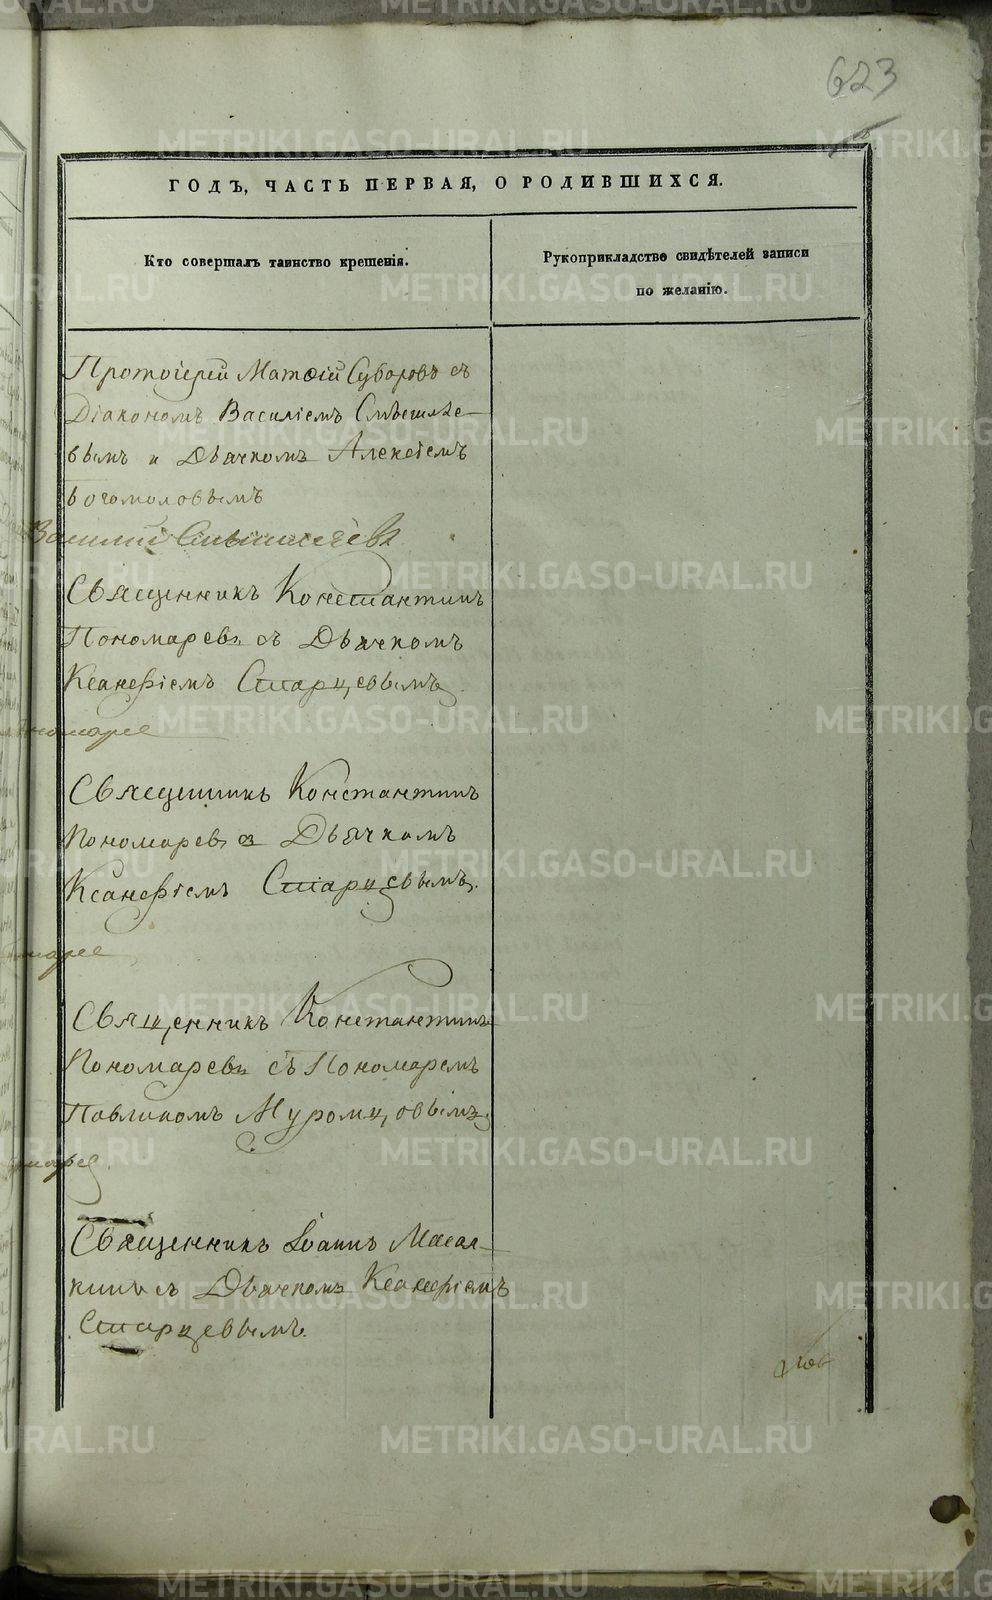 623
ГОДЪ, ЧАСТЬ ПЕРВАЯ, О РОДИВШИХСЯ.
Кто совершалъ таинство крещенія.
Рукоприкладство свидѣтелей записи
по желанію.
Протоіерей Матѳій Суворовъ съ
Діакономъ Василіемъ Смышляе-
вымъ и Дьячкомъ Алексіемъ
Богомоловымъ
Василій Смышляевъ
Священникъ Константинъ
Пономаревъ съ Дьячкомъ
Ксанѳіемъ Старцевымъ.
Священникъ Константинъ
Пономаревъ съ Дьячкомъ
Ксанѳіемъ Старцевымъ.
Священникъ Константинъ
Пономаревъ съ Пономаремъ
Павликомъ Муромцовымъ
Священникъ Іоаннъ Масал-
кинъ съ Дьячкомъ Ксанѳіемъ
Старцевымъ.
METRIKI.GASO-URAL.RU